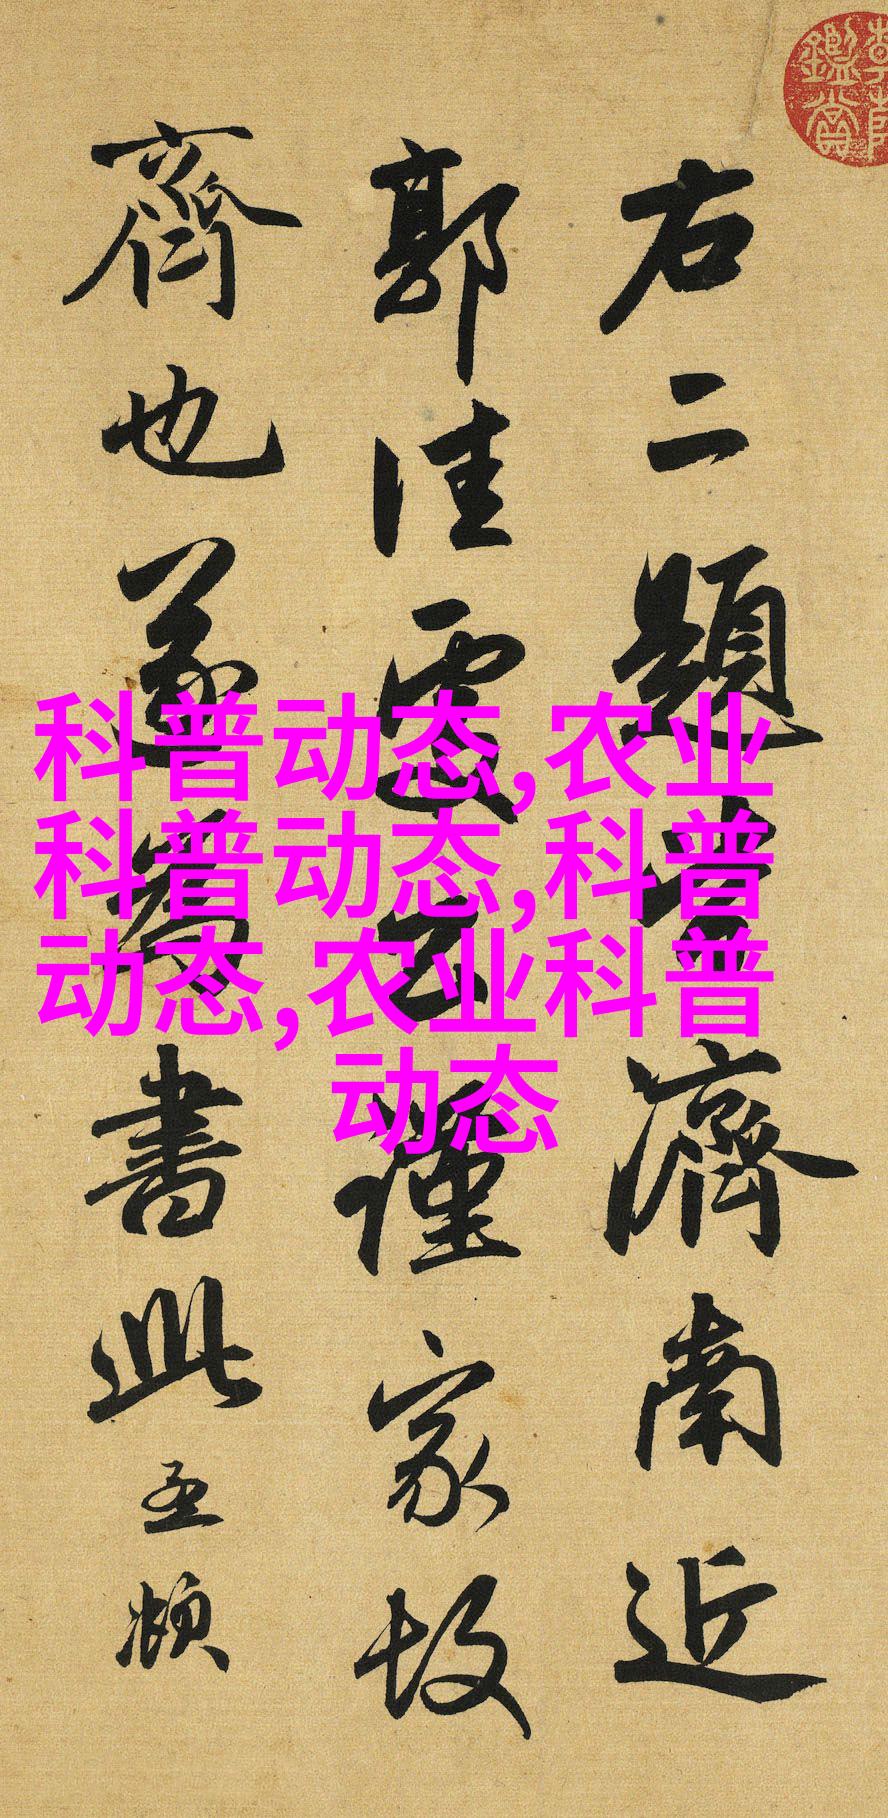 科普动态,农业
科普动态,科普
动态,农业科普
动态
右二題皆濟南近
郭佳處公謹家故
齊也遂為書此孟頫